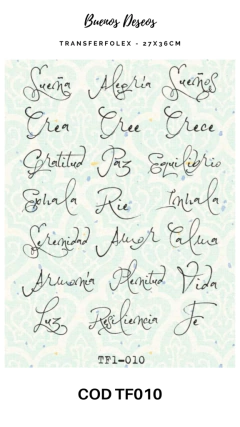 Buenos Deseos
TRANSFERFOLEX - 27X36CM
Sueña Alegría Sueños
Crea Cree Crece
Gratitud Paz Equilibrio
Exhala Rie Inhala
Serenidad Amor Calma
Armonía Plenitud Vida
Luz Resiliencia Fe
TF1-010
COD TF010